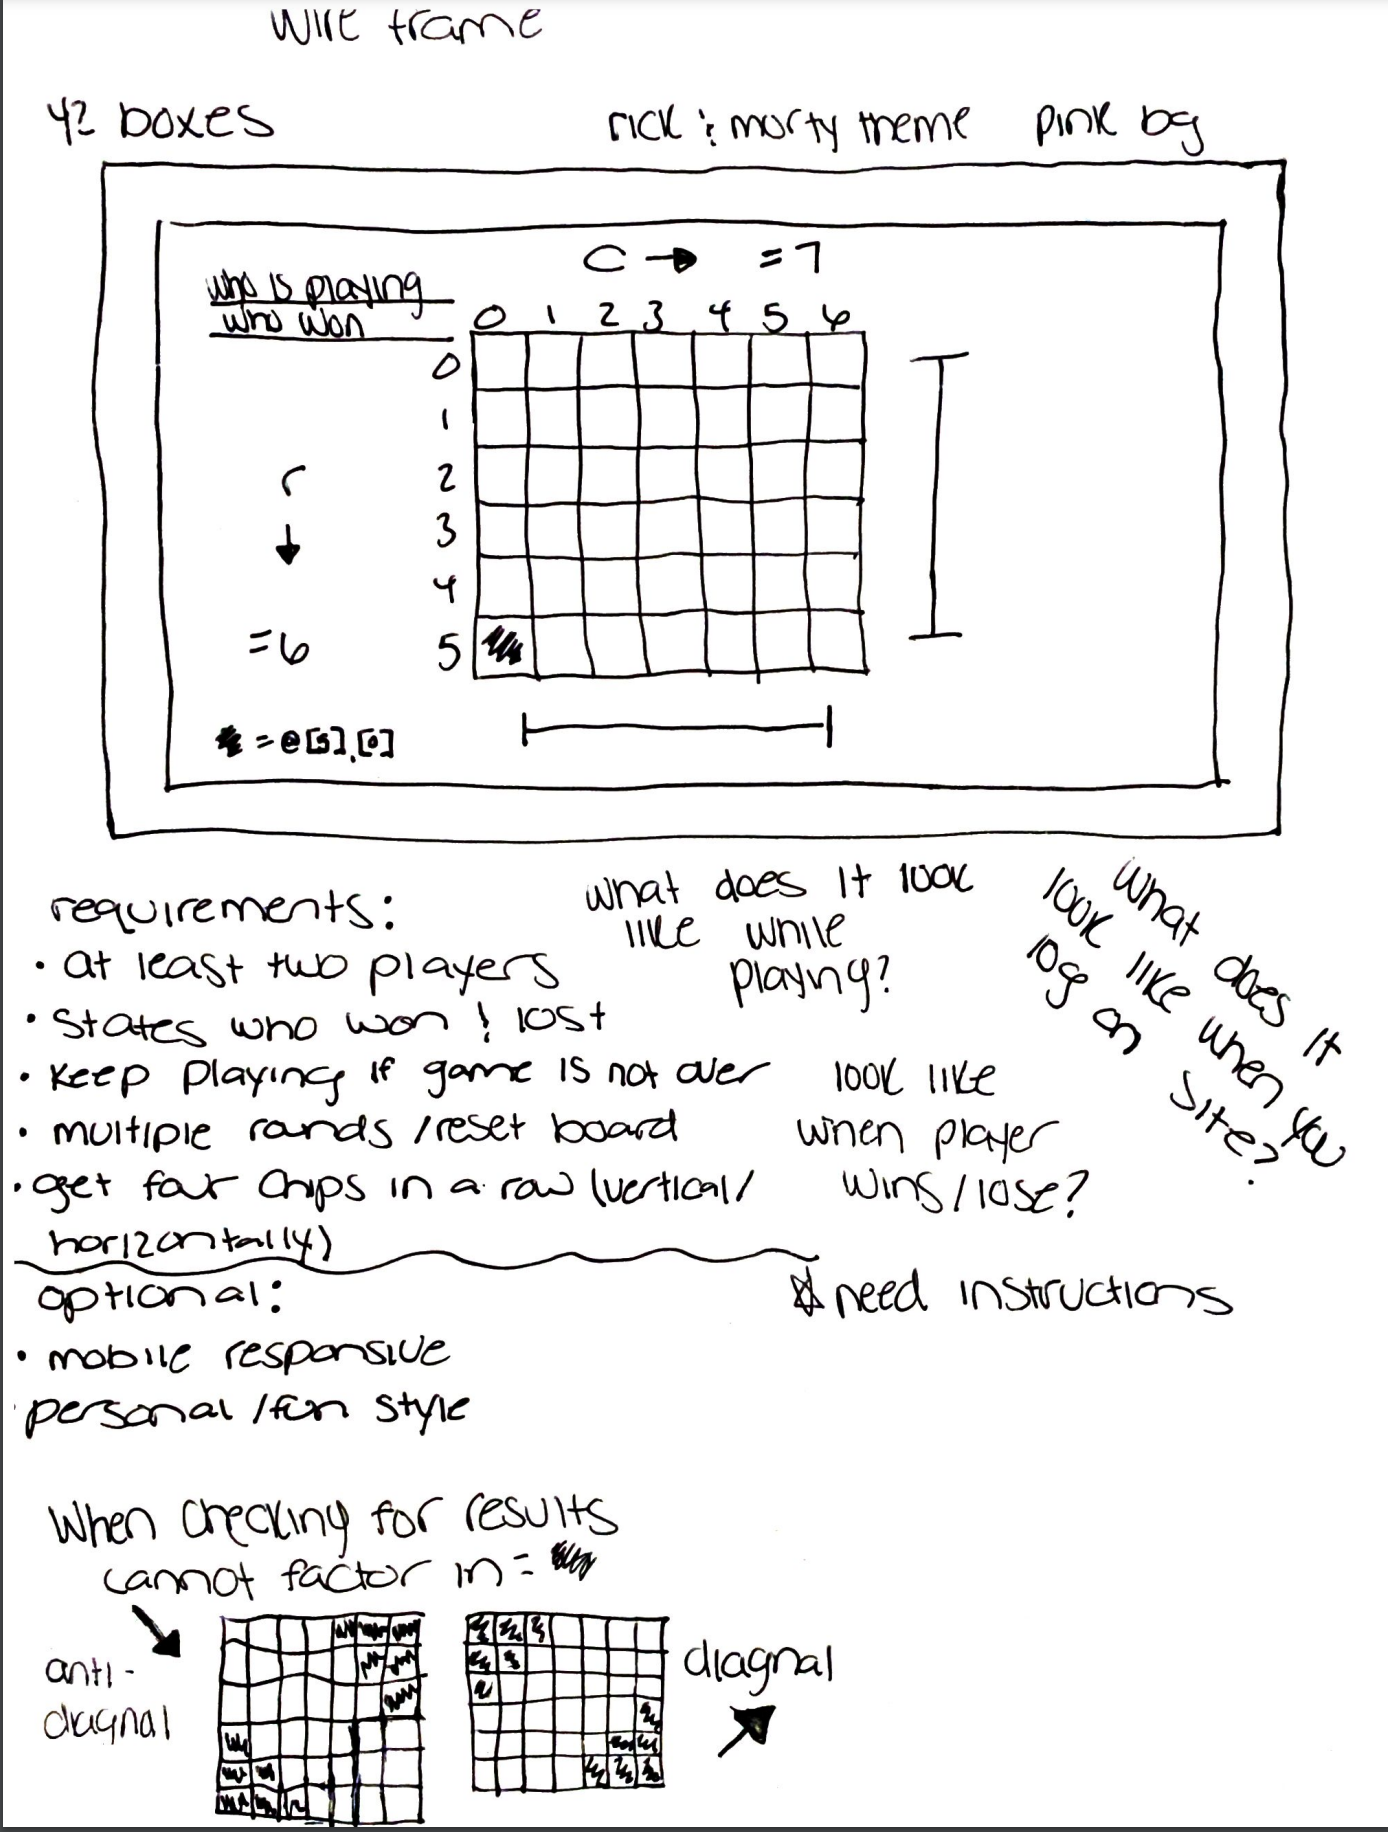 Wire frame
42 boxes
rick & morty theme pink bg
C → =7
who is playing
who won
0 1 2 3 4 5 6
0
1
2
3
4
5
r
↓
=6
= e[5],[0]
requirements:
• at least two players
• states who won & lost
• keep playing if game is not over
• multiple rounds / reset board
• get four chips in a row (vertical/
horizontally)
what does it look
like while
playing?
What does it
look like when you
log on site?
look like
when player
wins/lose?
optional:
• mobile responsive
• personal / fun style
☆ need instructions
When checking for results
cannot factor in =
anti-
diagnal
diagnal